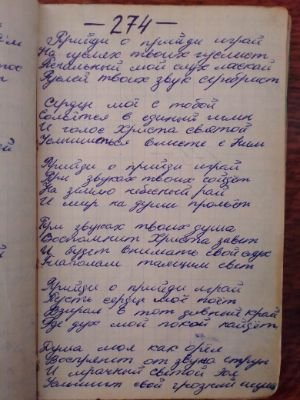 - 274 -
Прийди о прийди играй
На гуслях твоих гуслист
мой слух лаской
твоих звук серебрист
Сердце моё с тобой
Сольётся в единый гимн
И голос Христа святой
Услышиться вместе с Ним
Прийди о прийди играй
При звуках твоих сойдёт
На землю небесной рай
И мир на душу прольёт
При звуках твоих душа
Воспомнит Христа завет
И будет внимать свой дух
Глаголам свет
Прийди о прийди играй
Пусть сердце моё поёт
Взирая в тот дивный край
Где дух мой покой найдёт
Душа моя как орёл
Воспрянет от звука струн
И мрачный святой
Услышит свой грозный